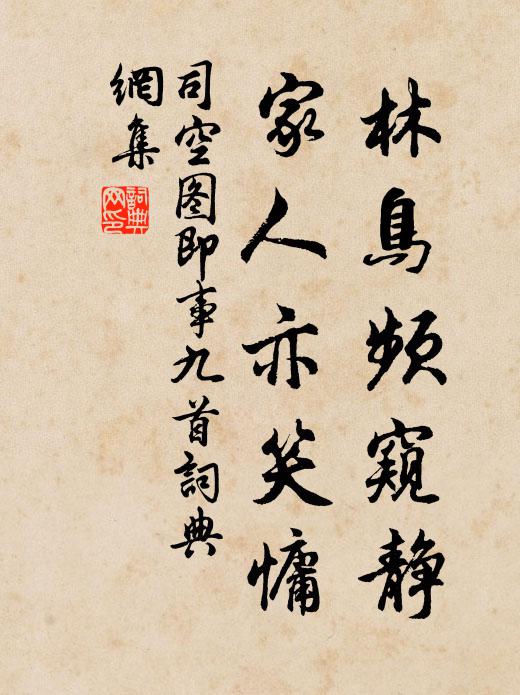 林鳥頻窺静
家人亦笑慵
司空图即事九首詞典
網集
詞典
网印